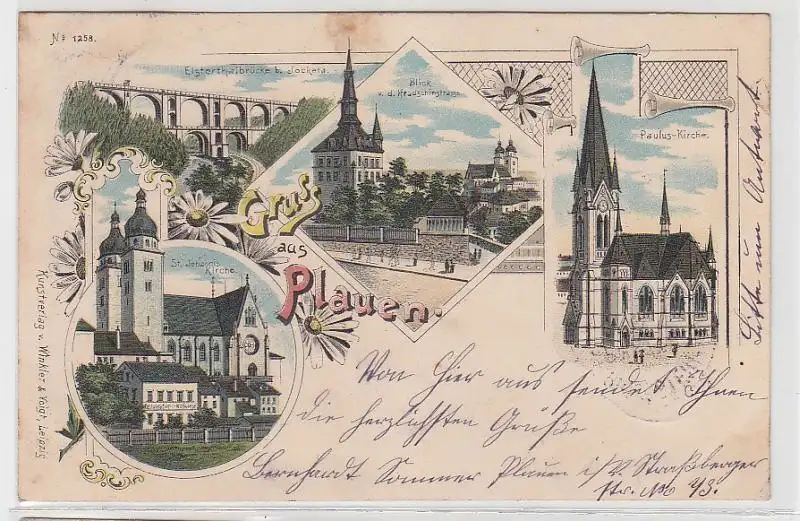 No 1258.
Elsterthalbrücke b. Jocketa.
Blick
v. d. Hradschinstrasse.
Paulus-Kirche.
Gruss
aus
Plauen.
St. Johannis
Kirche.
Kunstverlag v. Winkler & Voigt, Leipzig
Von hier aus sendet Ihnen
die herzlichsten Grüße
Bernhardt Sommer Plauen i/V. Straßberger
str. No 43.
Bitte um Antwort